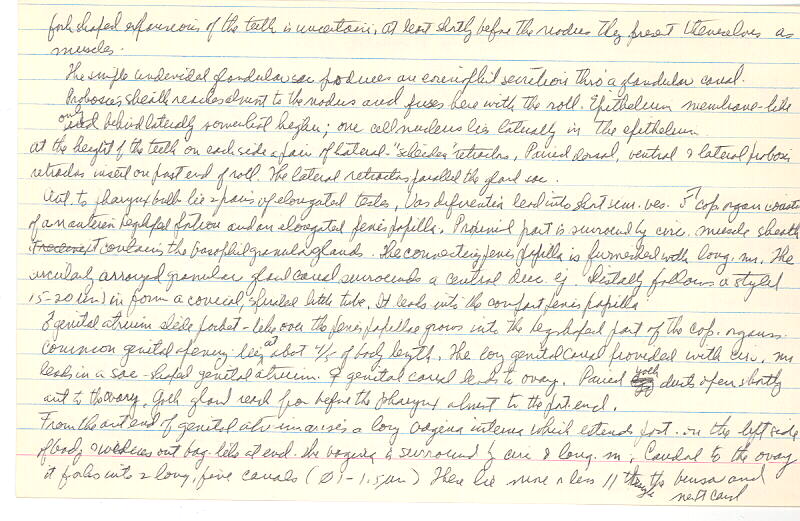 fork shaped expansions of the teeth is uncertain, at least shortly before the nodus they present themselves as
muscles.
The simple undivided glandular sac produces an eosinophil secretion thro' a glandular canal.
Proboscis sheath reaches almost to the nodus and fuses here with the roll. Epithelium membrane-like
only behind laterally somewhat higher; one cell nucleus lies laterally in the epithelium.
at the height of the teeth on each side a pair of lateral "scheiden" retractors, Paired dorsal, ventral & lateral proboscis
retractors insert on post end of roll. The lateral retractors parallel the gland sac.
Ant. to pharynx bulb lie 2 pairs of elongated testes, Vas deferentia lead into short sem. ves. ♂ cop. organ consists
of an anterior keg shaped portion and an elongated penis papilla. Proximal part is surround by circ. muscle sheath
& contains the basophil granular glands. The connecting penis papilla is furnished with long. m. The
circularly arrayed granular gland canal surrounds a central duc. ej. Distally follows a stylet
15-20 (um) in form a conical, splendid little tube. It leads into the penis papilla
♂ genital atrium slide pocket-like over the penis papilla grows into the keg shaped part of the cop. organs.
Common genital opening lies at abot 4/5 of body length. The long genital canal provided with circ. m
leads in a sac-shaped genital atrium. ♀ genital canal leads to ovary. Paired yolk ducts open shortly
ant to the ovary. Yolk gland reach from before the pharynx almost to the post. end.
From the ant end of genital atrium arises a long vagina interna which extends post. on the left side
of body & widens out bag-like at end. The vagina is surround by circ & long. m. Caudal to the ovary
it forks into 2 long, fine canals (Ø 1-1.5 um) There lie more or less // the bursa and
next canal